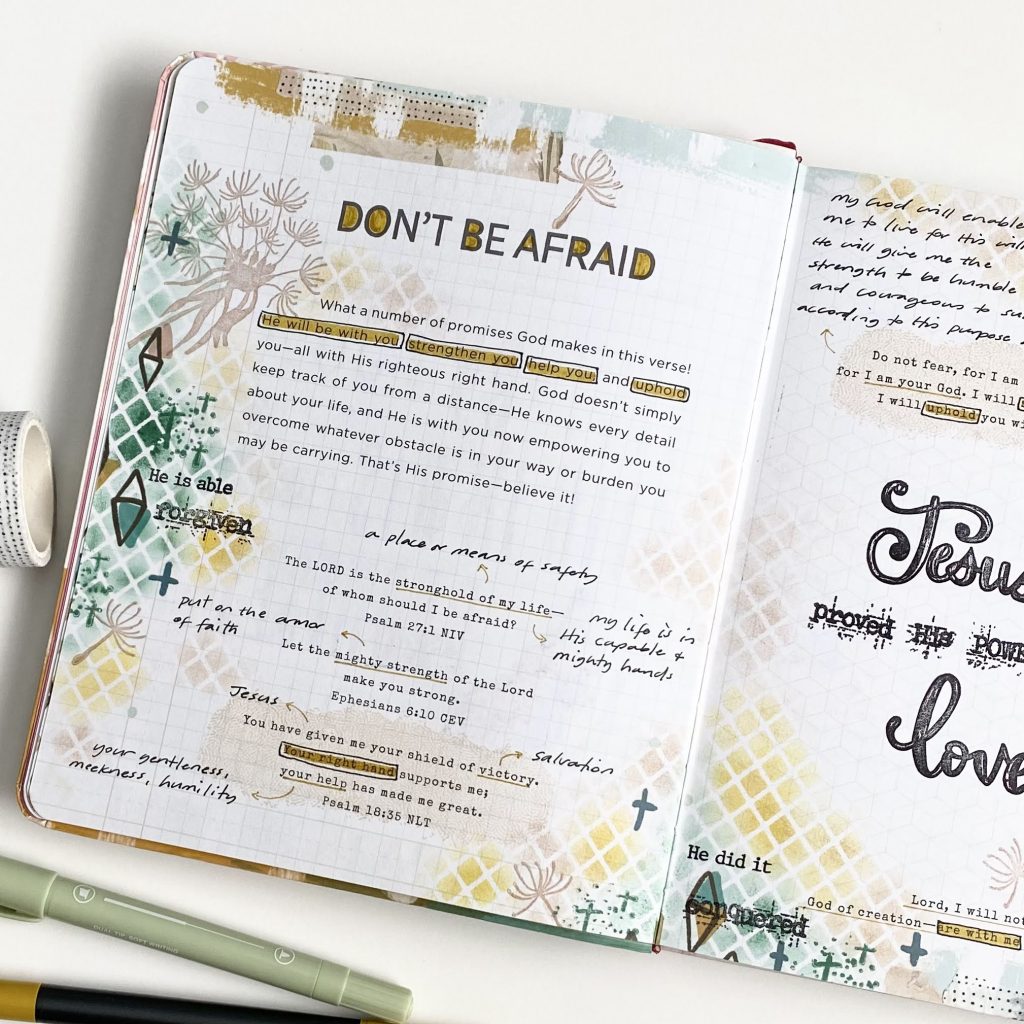 DON'T BE AFRAID
What a number of promises God makes in this verse!
He will be with you, strengthen you, help you, and uphold
you—all with His righteous right hand. God doesn't simply
keep track of you from a distance—He knows every detail
about your life, and He is with you now empowering you to
overcome whatever obstacle is in your way or burden you
may be carrying. That's His promise—believe it!
He is able
forgiven
a place or means of safety
The LORD is the stronghold of my life—
of whom should I be afraid?
Psalm 27:1 NIV
my life is in
His capable &
mighty hands
put on the armor
of faith
Let the mighty strength of the Lord
make you strong.
Ephesians 6:10 CEV
Jesus
You have given me your shield of victory.
Your right hand supports me;
your help has made me great.
Psalm 18:35 NLT
salvation
your gentleness,
meekness, humility
my God will enable
me to live for His will
He will give me the
strength to be humble
and courageous to
according to His purpose
Do not fear, for I am
for I am your God. I will
I will uphold you
Jesus
proved His
love
He did it
conquered
Lord, I will not
God of creation—are with me
DUAL TIP SOFT WRITING